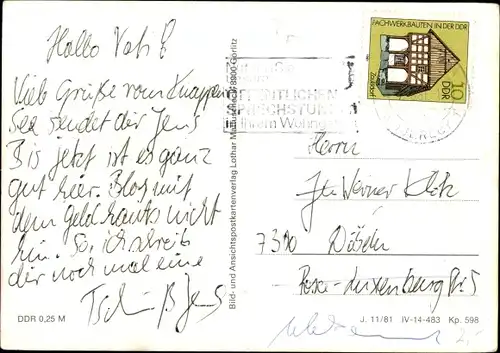 Hallo Vati
Viele Grüße vom Knappen
See sendet dir Jens
Bis jetzt ist es ganz
gut hier. Blos mit
dem Geld hauts nicht
hin. So, ich schreib
dir noch mal eine
Tschüß Jens
DDR 0,25 M
Bild- und Ansichtspostkartenverlag Lothar 8900 Görlitz
ÖFFENTLICHEN
SPRECHSTUNDEN
in Ihrem Wohngebiet
FACHWERKBAUTEN IN DER DDR
10
DDR
Herrn
Werner
Döbeln
Rosa-Luxenburg Str. 5
J. 11/81 IV-14-483 Kp. 598